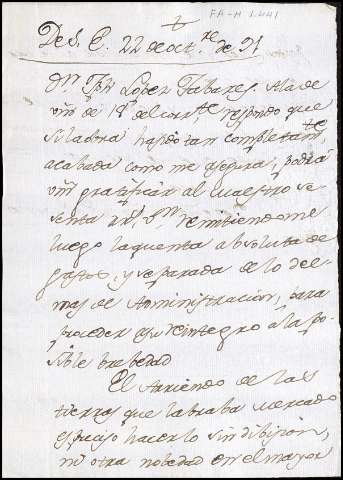 FA-M 1.441
De S. E. 22 de oct.re de 91
Dn. López Tabares. A la de
vm de 18 del corrte respondo que
si la obra ha sido tan completamte
acabada como me asegura, podrá
vm gratificar al Maestro se
senta rs. vn. remitiendome
luego la quenta absoluta de
gastos, y separada de lo de
mas de Administracion, para
proceder a su reintegro a la po
sible brebedad
El Arriendo de las
tierras que labraba Mercado
es preciso hacerlo sin dibision,
ni otra nobedad en el mayor